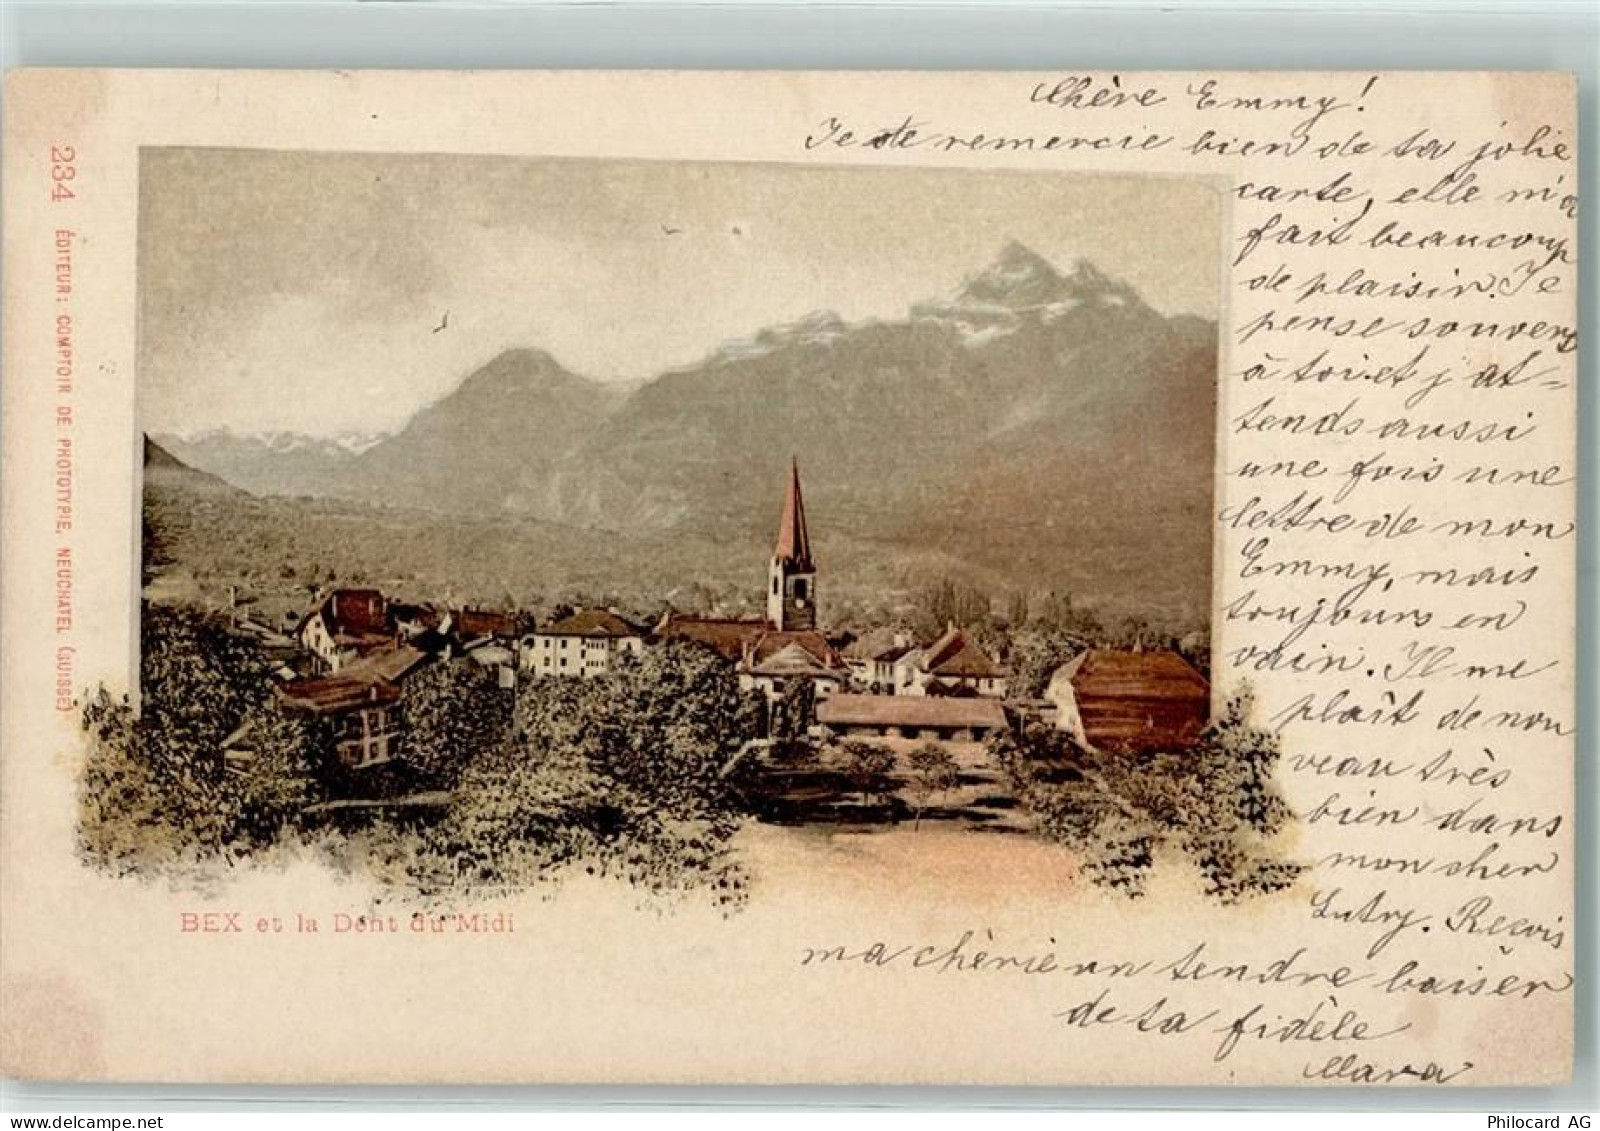 Chère Emmy!
Je te remercie bien de ta jolie
carte, elle m'a
fait beaucoup
de plaisir. Je
pense souvent
à toi et j'at=
tends aussi
une fois une
lettre de mon
Emmy, mais
toujours en
vain. Il me
plaît de nou
veau très
bien dans
mon cher
Lutry. Reçois
ma chèrie un tendre baiser
de ta fidèle
Clara
234 ÉDITEUR: COMPTOIR DE PHOTOTYPIE, NEUCHATEL (SUISSE)
BEX et la Dent du Midi
Philocard AG